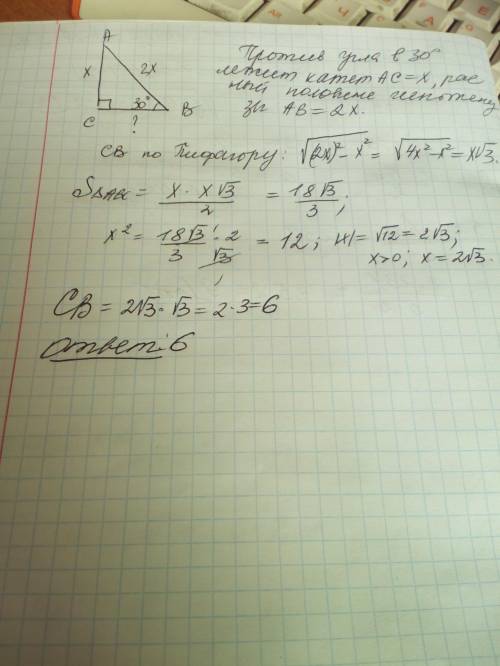 A
x 2x
30°
C B
?
Против угла в 30°
лежит катет AC=x, рав
ный половине гипотену
зы AB=2x.
CB по Пифагору: √((2x)²-x²) = √(4x²-x²) = x√3.
S△ABC = x·x√3/2 = 18√3/3;
x² = 18√3·2/3√3 = 12; |x|=√12=2√3;
x>0; x=2√3.
CB = 2√3·√3=2·3=6
Ответ:6